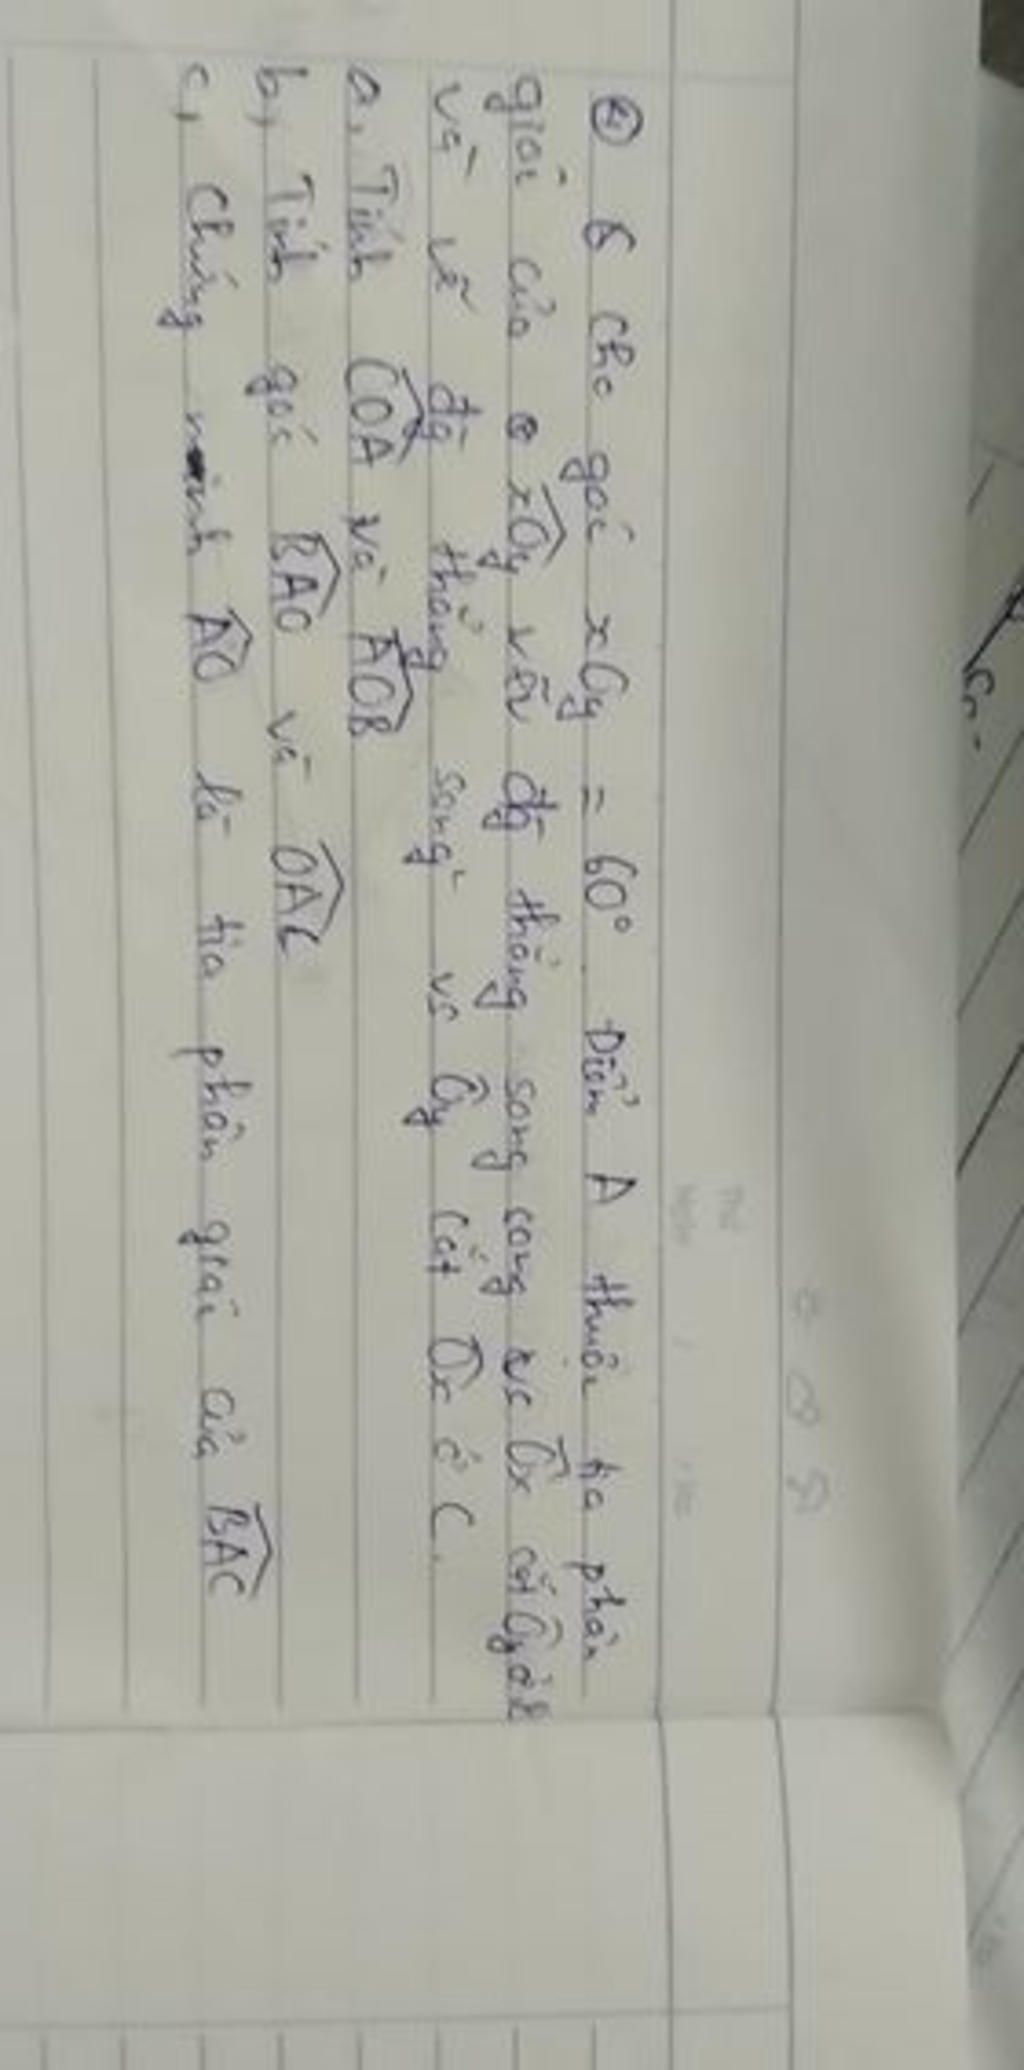 ④ 6 cho góc xOy = 60° Điểm A thuộc tia phân
giác của xOy vẽ đg thẳng song song vs Ox cắt Oy ở B
và vẽ đg thẳng song² vs Oy cắt Ox ở C.
a, Tính COA và AOB
b, Tính góc BAO và OAC
c, Chứng minh AO là tia phân giác của BAC